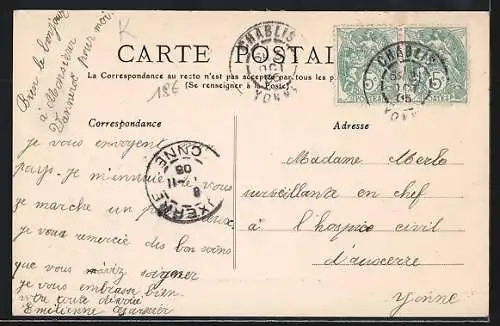 K
Bien le bonjour
a Monsieur
pour moi.
CARTE POSTALE
La Correspondance au recto n'est pas acceptée par tous les pays étrangers
(Se renseigner à la Poste)
18€
CHABLIS
YONNE
CHABLIS
OCT
05
YONNE
5 5
Correspondance
Adresse
je vous envoyent
pays. je m'ennuie de vous
je marche un p
je vous remercie des bon soins
que vous m'aviz soigner
je vous embrass bien.
votre toute dévoué
Emilienne
AUXERRE
YONNE
Madame Merlo
surveillante en chef
à l'hospice civil
d'auxerre
Yonne